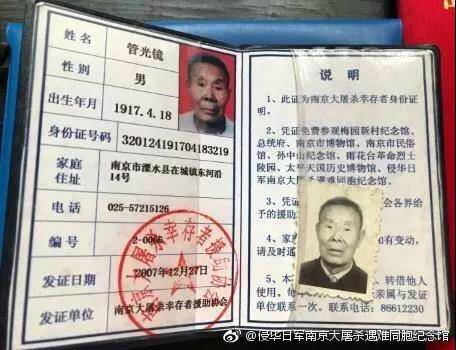 姓名
管光镜
性别
男
出生年月
1917.4.18
身份证号码
320124191704183219
家庭
住址
南京市溧水县在城镇东河沿
14号
电话
025-57215126
编号
2-0066
发证日期
2007年12月27日
发证单位
南京大屠杀幸存者援助协会
南京大屠杀幸存者援助协会
说明
1、此证为南京大屠杀幸存者身份证
明。
2、凭证免费参观梅园新村纪念馆、
总统府、南京市博物馆、南京市民俗
馆、孙中山纪念馆、雨花台革命烈士
陵园、太平天国历史博物馆、侵华日
军南京大屠杀遇难同胞纪念馆。
3、凭证
会各界给
予的援助
4、家庭
有变动,
请及时通
5、本
转借他人
使用。每
亲属与发
证单位联系一次。联系电话:86612230
@侵华日军南京大屠杀遇难同胞纪念馆